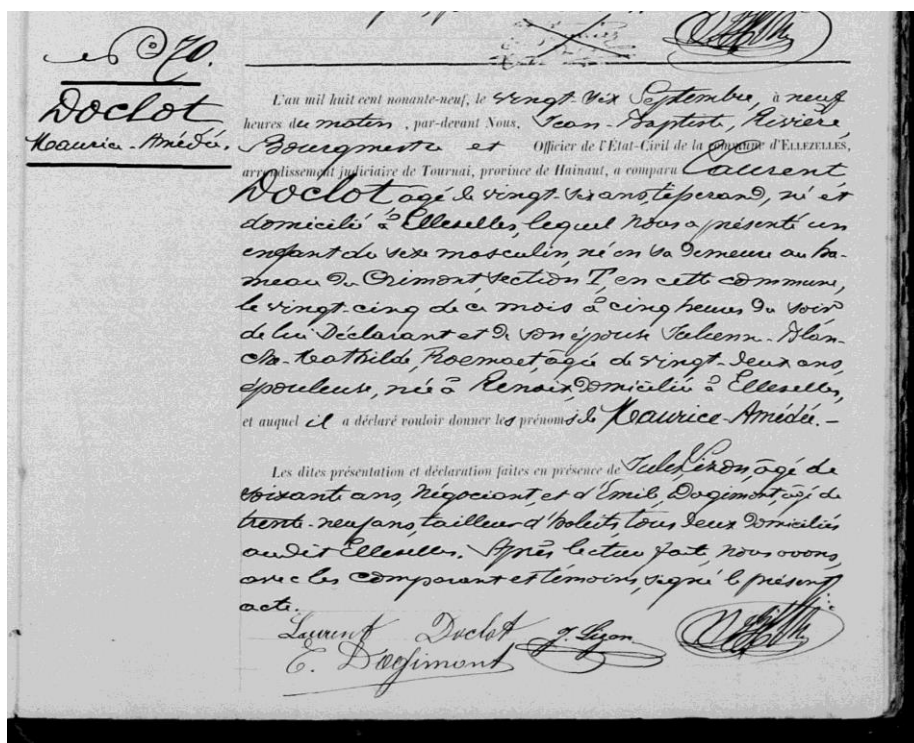 N° 70.
Doclot
Maurice-Amédée.
L'an mil huit cent nonante-neuf, le vingt-six Septembre, à neuf
heures du matin, par-devant Nous, Jean-Baptiste, Rivière,
Bourgmestre et Officier de l'État-Civil de la commune d'ELLEZELLES,
arrondissement judiciaire de Tournai, province de Hainaut, a comparu Laurent
Doclot, agé de vingt-six ans, tisserand, né et
domicilié à Ellezelles, lequel Nous a présenté un
enfant du sexe masculin, né en sa demeure au ha-
meau du Crimont, section I, en cette commune,
le vingt-cinq de ce mois à cinq heures du soir
de lui Déclarant et de son épouse Julienne-Blan-
che-Mathilde, Roemaet, agée de vingt-deux ans,
épouleuse, née à Renaix, domiciliée à Ellezelles,
et auquel il a déclaré vouloir donner les prénoms de Maurice-Amédée.-
Les dites présentation et déclaration faites en présence de Jules Lizon, agé de
soixante ans, Négociant, et d'Emile Dagimont, agé de
trente-neuf ans, tailleur d'habits, tous deux domiciliés
audit Ellezelles. Après lecture faite, Nous avons,
avec les comparant et témoins, signé le présent
acte.
Laurent Doclot J. Lizon
E. Dagimont